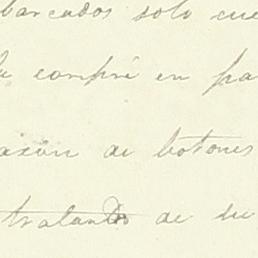 barcados solo cue
la compré en pa
axón de botones
tralando de su